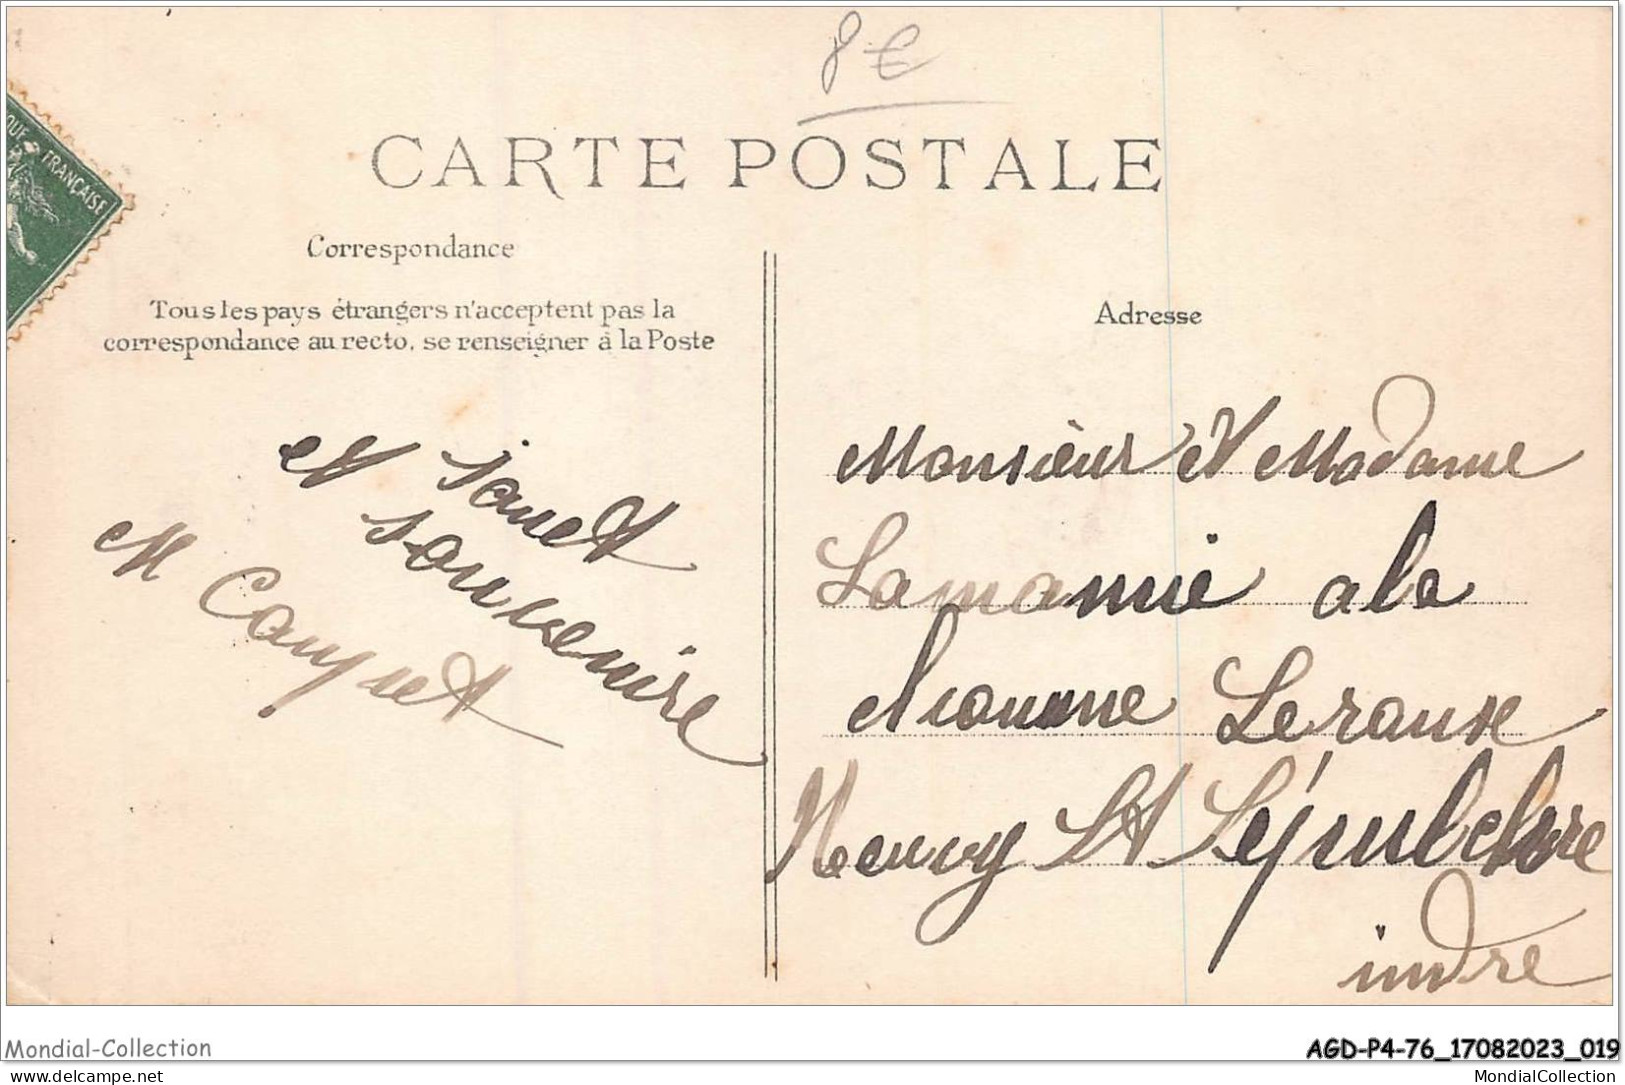 8€
CARTE POSTALE
QUE FRANÇAISE
Correspondance
Tous les pays étrangers n'acceptent pas la
correspondance au recto, se renseigner à la Poste
Adresse
et
souvenire
M
Monsieur et Madame
Lamamie a la
Leroux
Neuvy St Sépulchre
indre
Mondial-Collection
AGD-P4-76_17082023_019
www.delcampe.net
MondialCollection